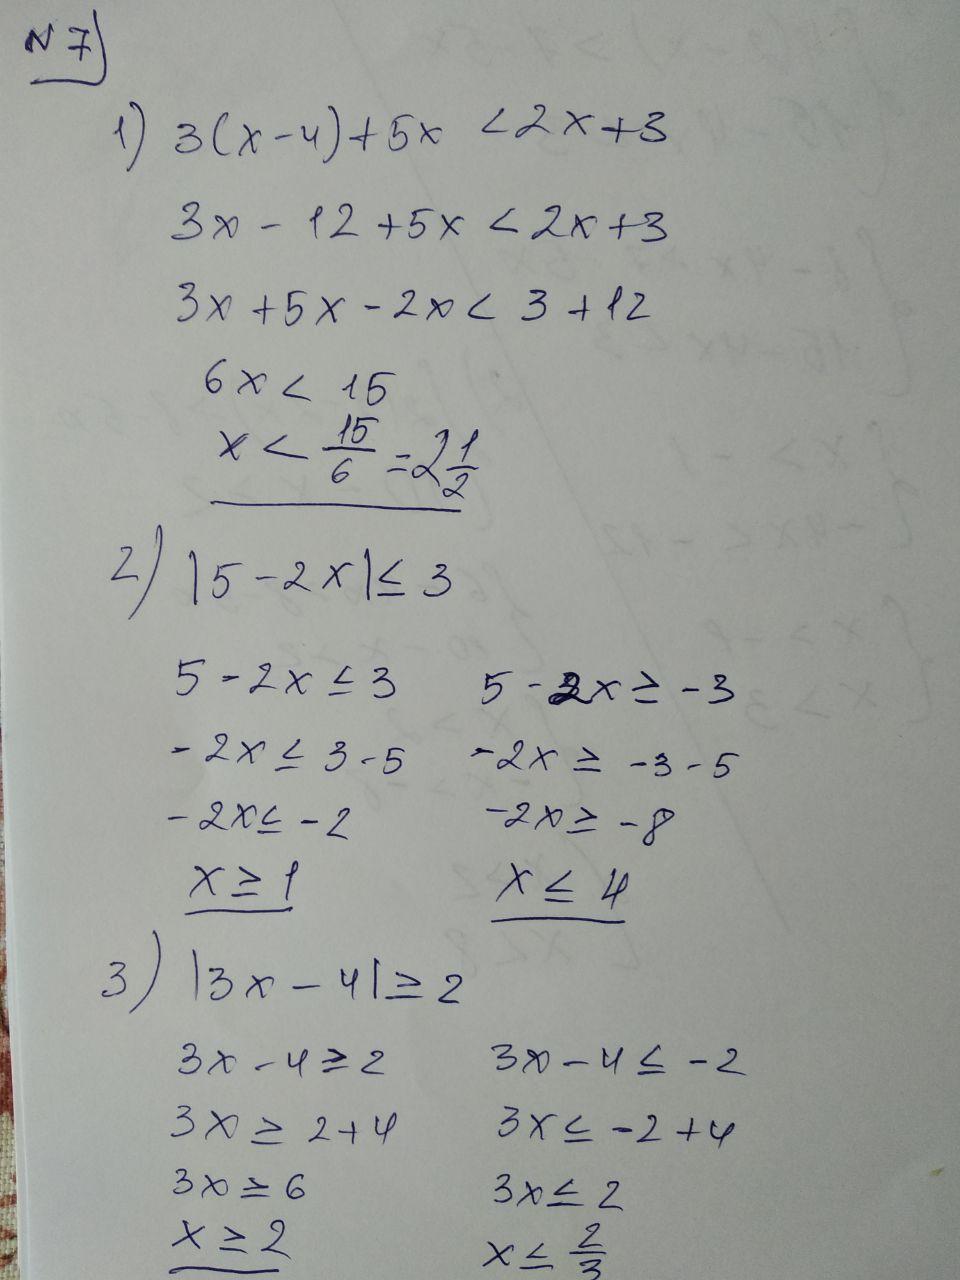 N 7)
1) 3(x-4)+5x <2x+3
3x - 12 +5x <2x+3
3x +5x - 2x < 3 +12
6x < 15
x < 15/6 = 2 1/2
2) |5 - 2x| ≤ 3
5 - 2x ≤ 3 5 - 2x ≥ -3
- 2x ≤ 3 - 5 -2x ≥ -3 - 5
- 2x ≤ -2 -2x ≥ -8
x ≥ 1 x ≤ 4
3) |3x - 4| ≥ 2
3x - 4 ≥ 2 3x - 4 ≤ -2
3x ≥ 2+4 3x ≤ -2 +4
3x ≥ 6 3x ≤ 2
x ≥ 2 x ≤ 2/3